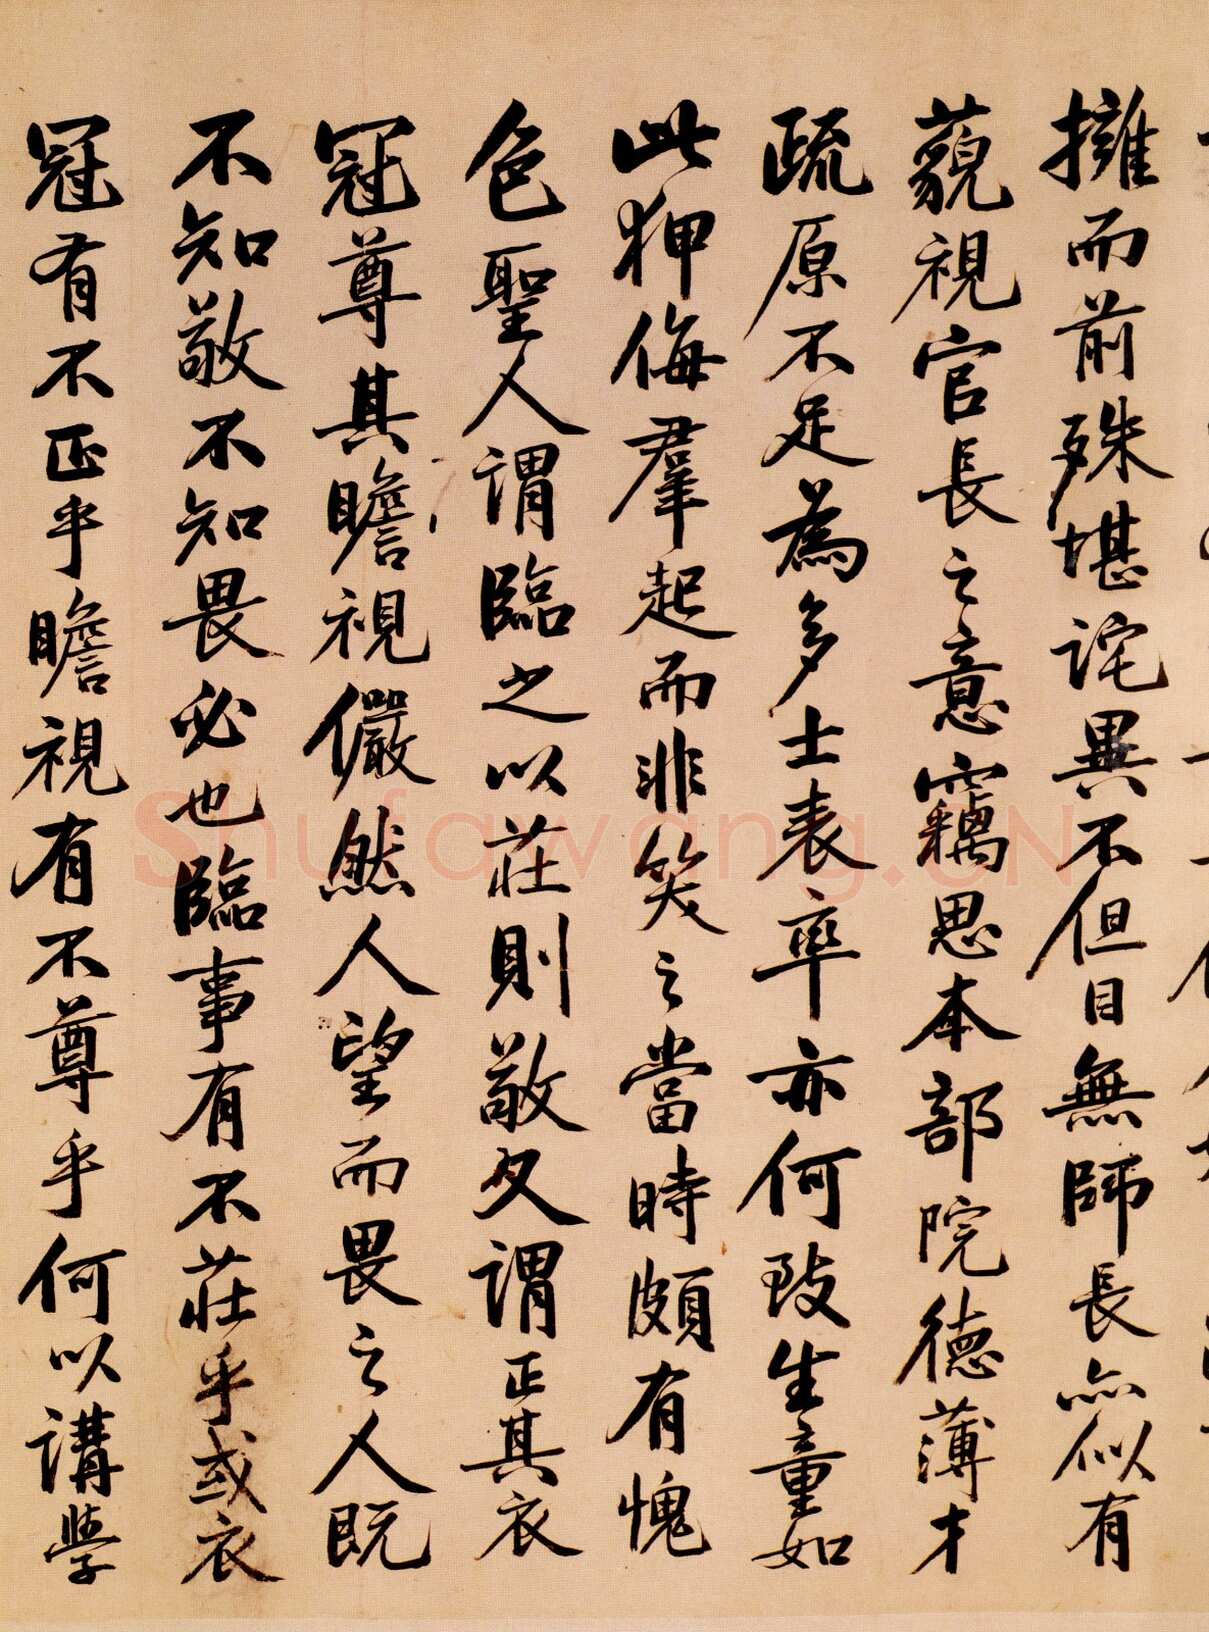 擁而前殊堪詫異不但目無師長亦似有
藐視官長之意竊思本部院德薄才
疏原不足為多士表率亦何致生童如
此狎侮羣起而非笑之當時頗有愧
色聖人謂臨之以莊則敬又謂正其衣
冠尊其瞻視儼然人望而畏之人既
不知敬不知畏必也臨事有不莊乎或衣
冠有不正乎瞻視有不尊乎何以講學
Shufawang.CN